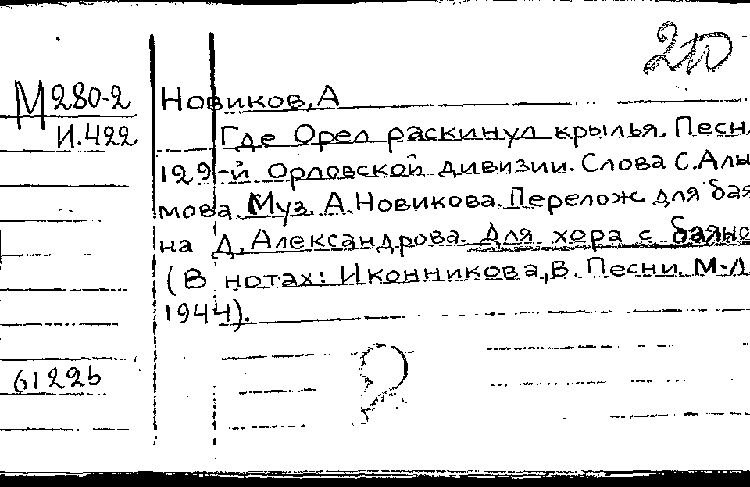 210
М280-2
Новиков, А
И.422
Где Орел раскинул крылья. Песн
129-й Орловской дивизии. Слова С. Алы
мова. Муз. А. Новикова. Перелож для бая
на Д. Александрова. Для хора с баяно
(В нотах: Иконникова, В. Песни. М-Л
1944).
61226
?